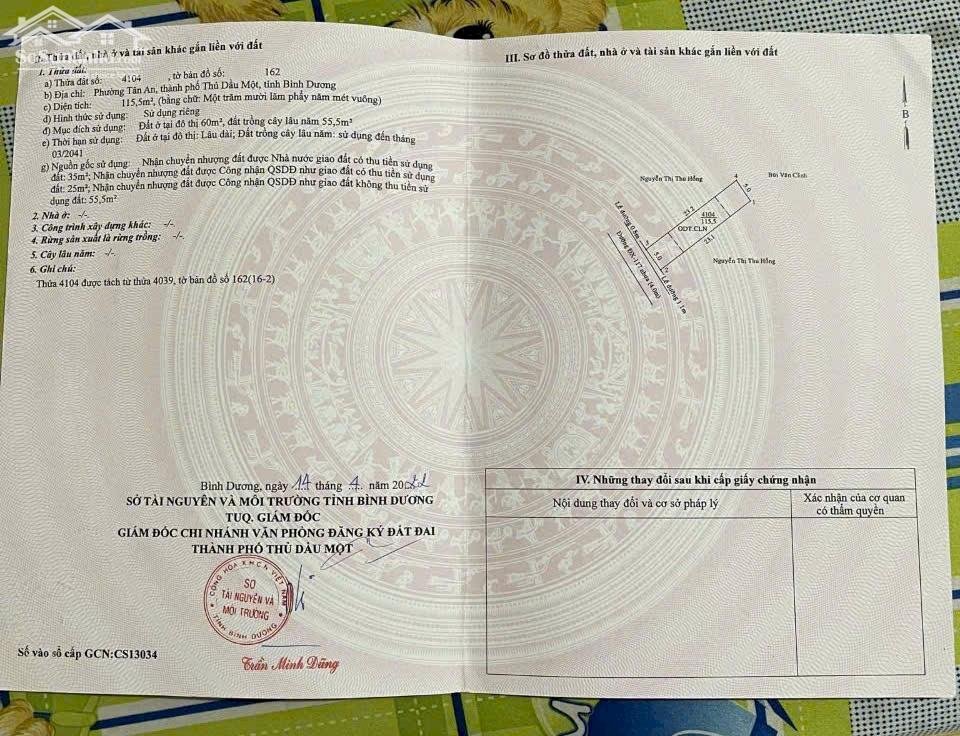 II. Thửa đất, nhà ở và tài sản khác gắn liền với đất
1. Thửa đất:
a) Thửa đất số: 4104 , tờ bản đồ số: 162
b) Địa chỉ: Phường Tân An, thành phố Thủ Dầu Một, tỉnh Bình Dương
c) Diện tích: 115,5m², (bằng chữ: Một trăm mười lăm phẩy năm mét vuông)
d) Hình thức sử dụng: Sử dụng riêng
đ) Mục đích sử dụng: Đất ở tại đô thị 60m², đất trồng cây lâu năm 55,5m²
e) Thời hạn sử dụng: Đất ở tại đô thị: Lâu dài; Đất trồng cây lâu năm: sử dụng đến tháng
03/2041
g) Nguồn gốc sử dụng: Nhận chuyển nhượng đất được Nhà nước giao đất có thu tiền sử dụng
đất: 35m²; Nhận chuyển nhượng đất được Công nhận QSDĐ như giao đất có thu tiền sử dụng
đất: 25m²; Nhận chuyển nhượng đất được Công nhận QSDĐ như giao đất không thu tiền sử
dụng đất: 55,5m²
2. Nhà ở: -/-.
3. Công trình xây dựng khác: -/-.
4. Rừng sản xuất là rừng trồng: -/-.
5. Cây lâu năm: -/-.
6. Ghi chú:
Thửa 4104 được tách từ thửa 4039, tờ bản đồ số 162(16-2)
Bình Dương, ngày 14 tháng 4 năm 2022
SỞ TÀI NGUYÊN VÀ MÔI TRƯỜNG TỈNH BÌNH DƯƠNG
TUQ. GIÁM ĐỐC
GIÁM ĐỐC CHI NHÁNH VĂN PHÒNG ĐĂNG KÝ ĐẤT ĐAI
THÀNH PHỐ THỦ DẦU MỘT
CỘNG HÒA XHCN VIỆT NAM
SỞ
TÀI NGUYÊN VÀ
MÔI TRƯỜNG
TỈNH BÌNH DƯƠNG
Trần Minh Dũng
Số vào sổ cấp GCN:CS13034
III. Sơ đồ thửa đất, nhà ở và tài sản khác gắn liền với đất
B
Nguyễn Thị Thu Hồng
Bùi Văn Cảnh
4
5.0
1
23,2
4104
115,5
ODT.CLN
23,1
3
5.0
2
Nguyễn Thị Thu Hồng
Lề đường 0.8m
Đường ĐX-117 nhựa (4.0m)
Lề đường 1.1m
IV. Những thay đổi sau khi cấp giấy chứng nhận
Nội dung thay đổi và cơ sở pháp lý
Xác nhận của cơ quan
có thẩm quyền